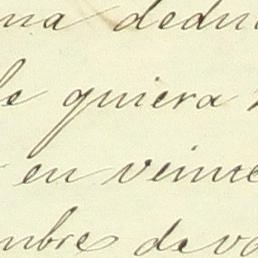 una dedu
le quiera
en veinte
mbre de vo